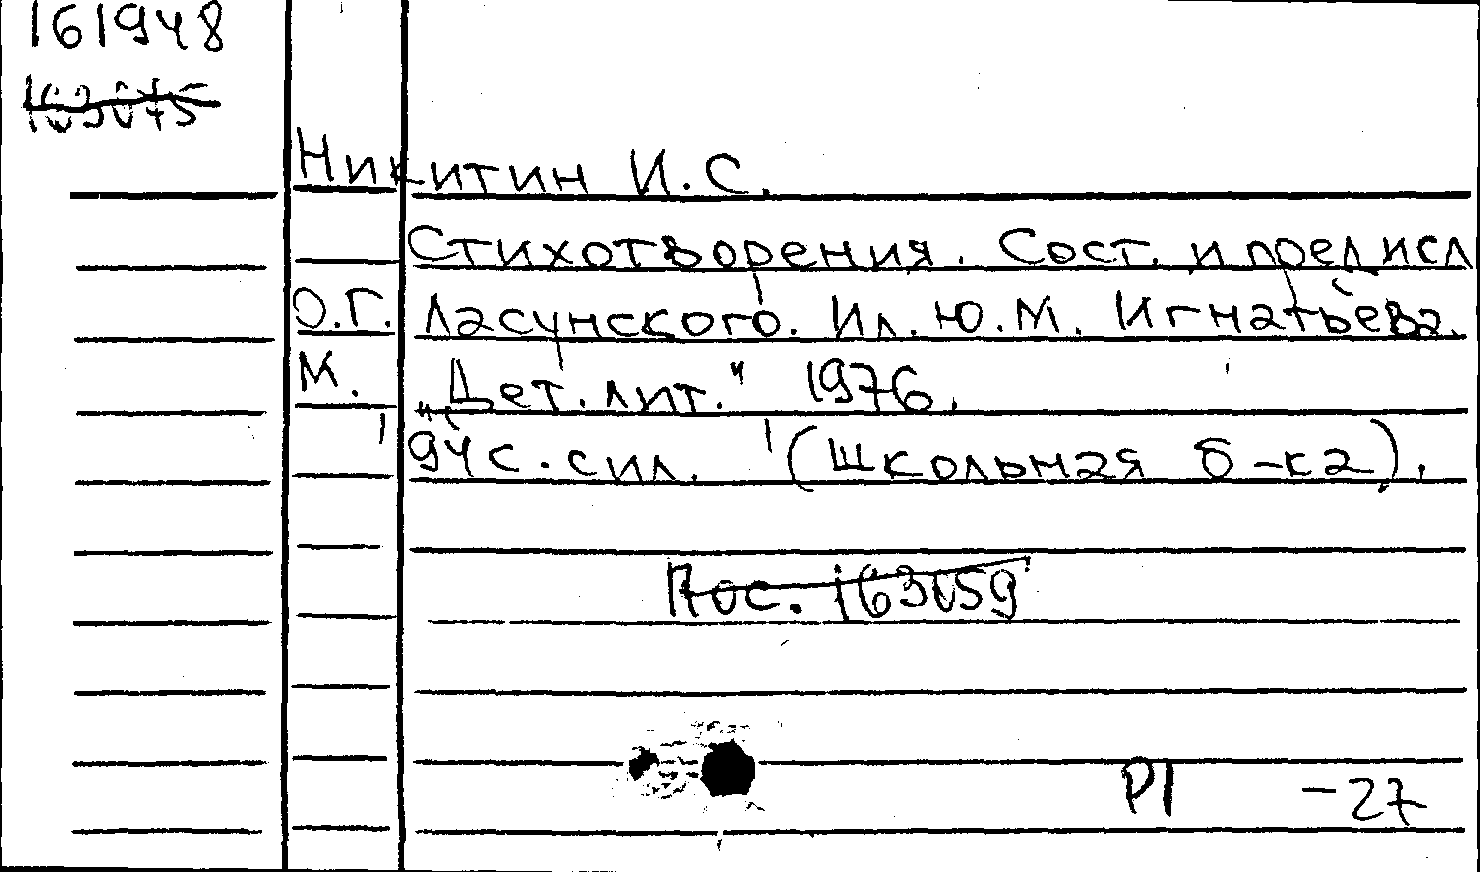 161948
163075
Никитин И.С.
Стихотворения. Сост. и предисл
О.Г. Ласунского. Ил. Ю.М. Игнатьева.
М. "Дет. лит." 1976.
94с. с ил. (Школьная б-ка).
Пос. 163059
Р1 -27